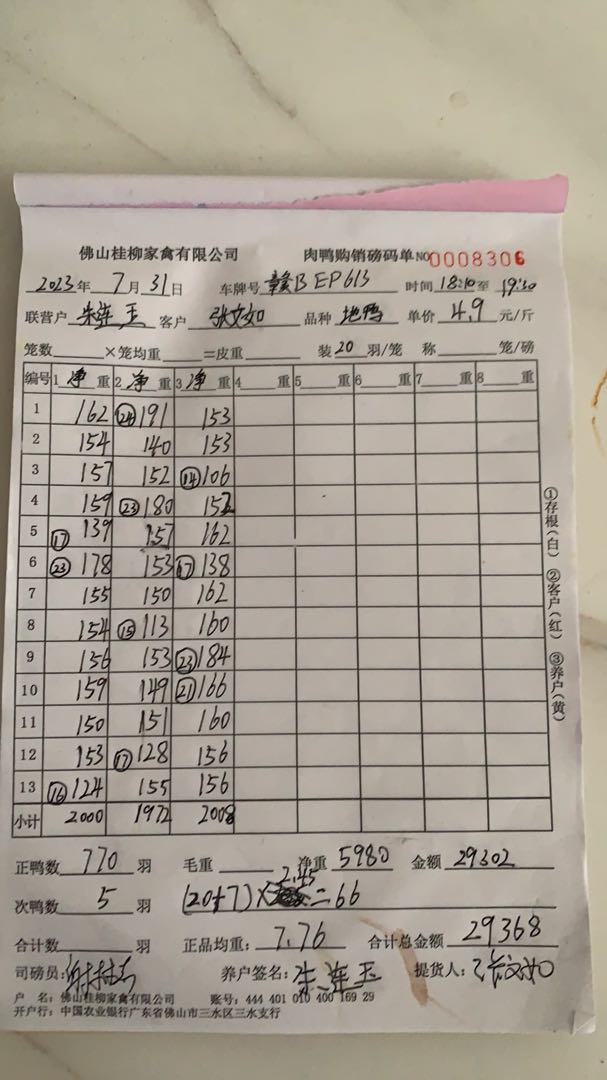 佛山桂柳家禽有限公司 肉鸭购销磅码单 NO 0008306
2023年 7月 31日 车牌号 赣B EP613 时间 18:10至 19:30
联营户 朱连玉 客户 张文如 品种 地鸭 单价 4.9 元/斤
笼数 ×笼均重 =皮重 装 20 羽/笼 称 笼/磅
编号 1 净重 2 净重 3 净重 4 重 5 重 6 重 7 重 8 重
1 162 ㉔191 153
2 154 140 153
3 157 152 ⑭106
4 159 ㉓180 152
5 ⑰139 157 162
6 ㉓178 153 ⑰138
7 155 150 162
8 154 ⑮113 160
9 156 153 ㉓184
10 159 149 ㉑166
11 150 151 160
12 153 ⑰128 156
13 ⑯124 155 156
小计 2000 1972 2008
①存根(白) ②客户(红) ③养户(黄)
正鸭数 770 羽 毛重 净重 5980 金额 29302
2.45
次鸭数 5 羽 (20+7)× =66
合计数 羽 正品均重: 7.76 合计总金额 29368
司磅员: 养户签名: 朱连玉 提货人: 张文如
户 名: 佛山桂柳家禽有限公司 账号: 444 401 010 400 169 29
开户行: 中国农业银行广东省佛山市三水区三水支行